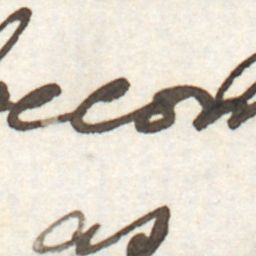 becom
as